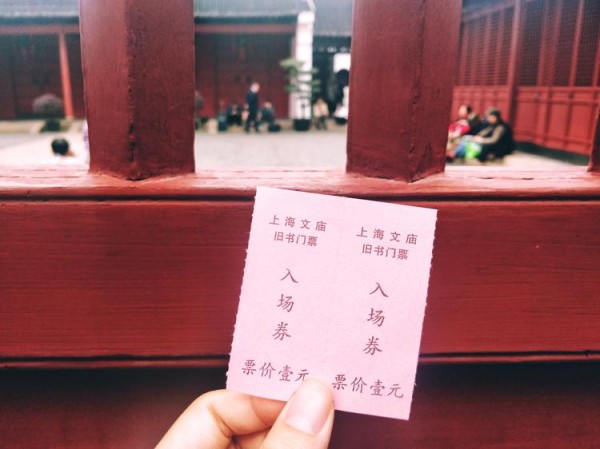 上海文庙
旧书门票
入
场
券
票价壹元
上海文庙
旧书门票
入
场
券
票价壹元